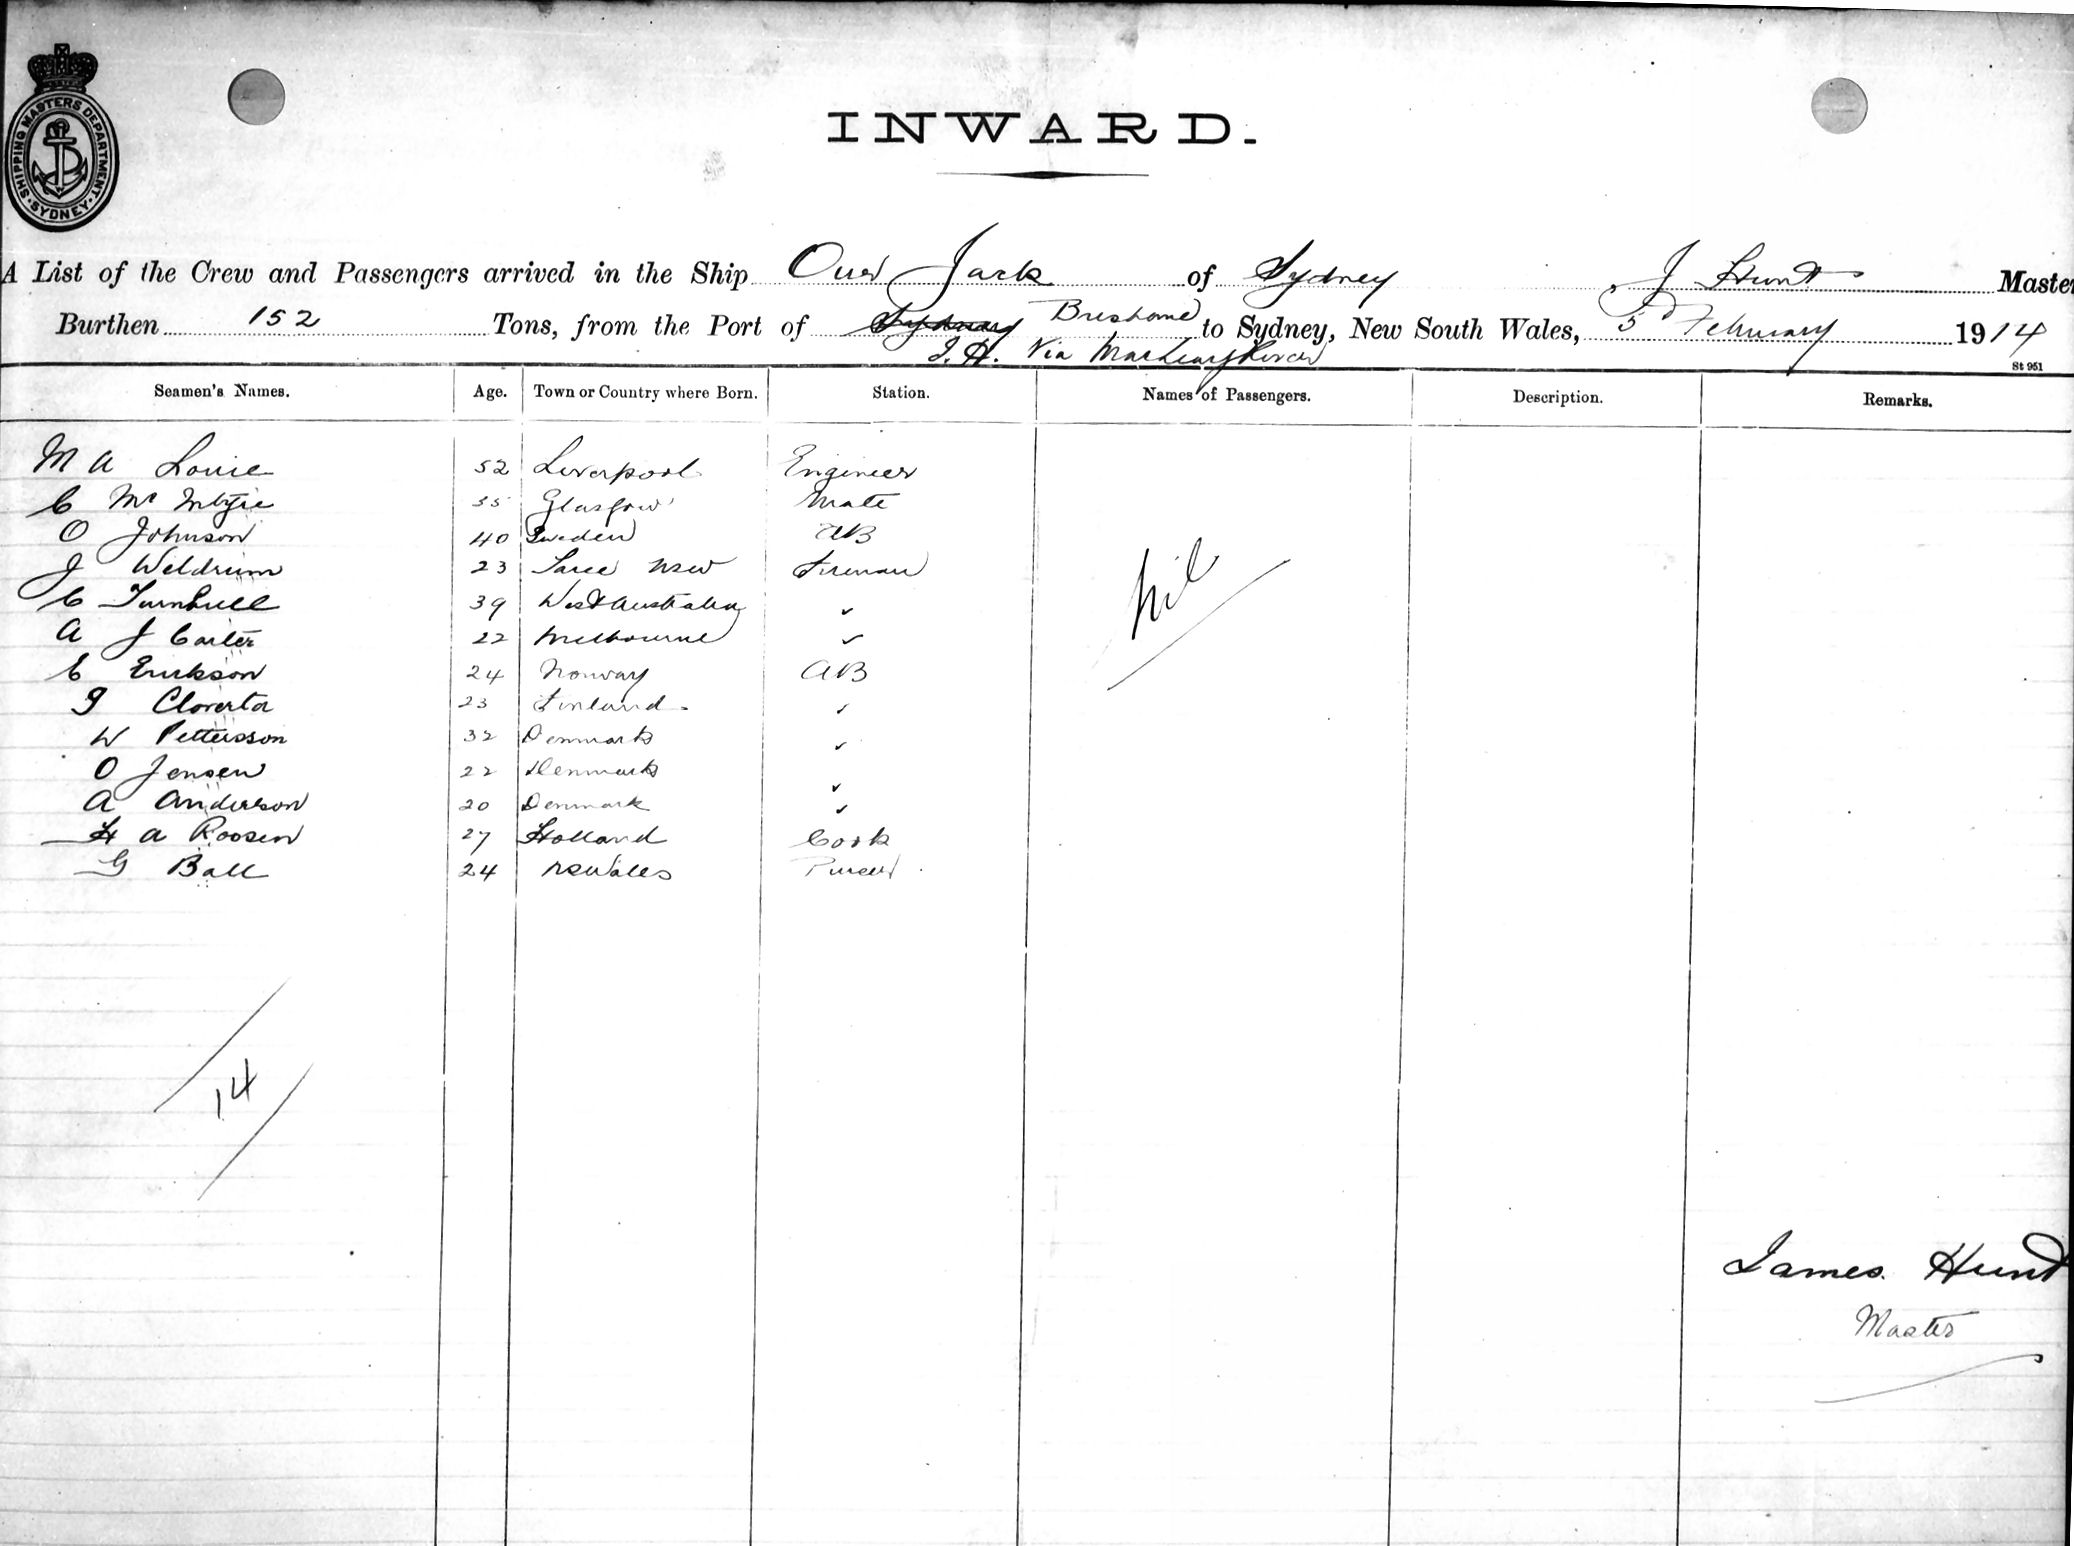 SHIPPING MASTERS DEPARTMENT. SYDNEY.
INWARD.
A List of the Crew and Passengers arrived in the Ship Our Jack of Sydney, J Hunt Master
Burthen 152 Tons, from the Port of Sydney Brisbane to Sydney, New South Wales, 5 February 1914
J. H. Via Macleay River
St 951
Seamen's Names. Age. Town or Country where Born. Station. Names of Passengers. Description. Remarks.
M A Lowie 52 Liverpool Engineer
C Mc Intyre 35 Glasgow Mate
O Johnson 40 Sweden AB
J Weldrum 23 Taree NSW Fireman
C Turnbull 39 West Australia ✓
A J Carter 22 Melbourne ✓
C Erickson 24 Norway AB
nil
G 23 Finland ✓
W Pettersson 32 Denmark ✓
O Jensen 22 Denmark ✓
A Anderson 20 Denmark ✓
H A Roosen 27 Holland Cook
G Ball 24 NSWales Purser
14
James Hunt
Master